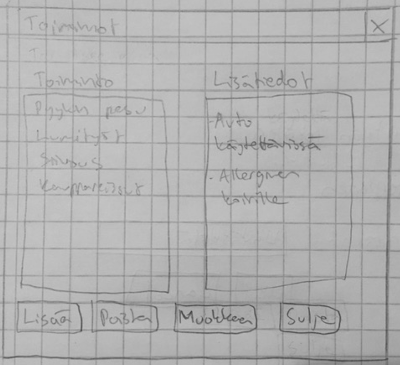 Toiminnot
X
Toiminto
Pyykin pesu
Lumityöt
Siivous
Kauppareissut
Lisätiedot
- Auto
käytettävissä
- Allerginen
koirille
Lisää
Poista
Muokkaa
Sulje